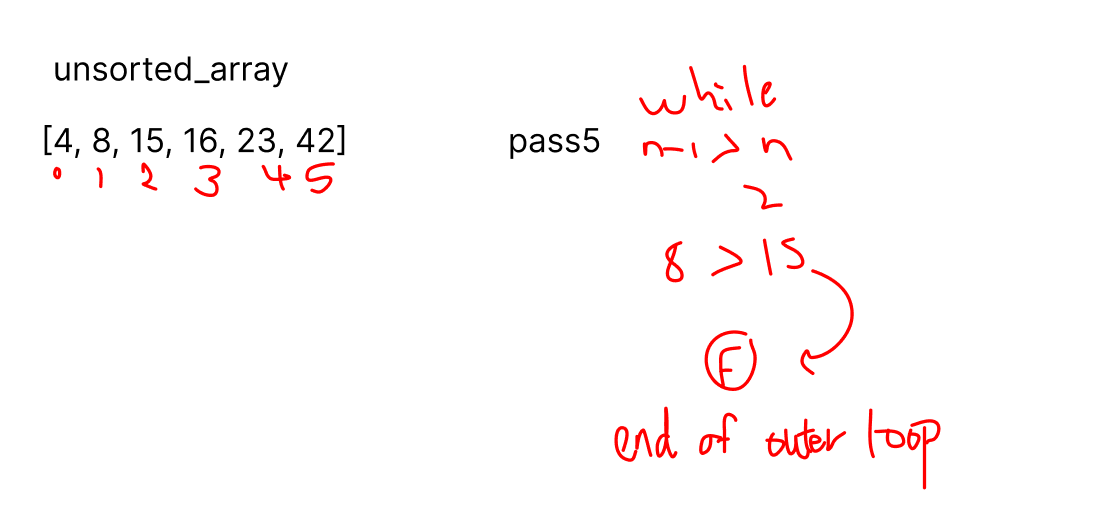 unsorted_array
[4, 8, 15, 16, 23, 42]
0 1 2 3 4 5
pass5
while
n-1 > n
2
8 > 15
F
end of outer loop